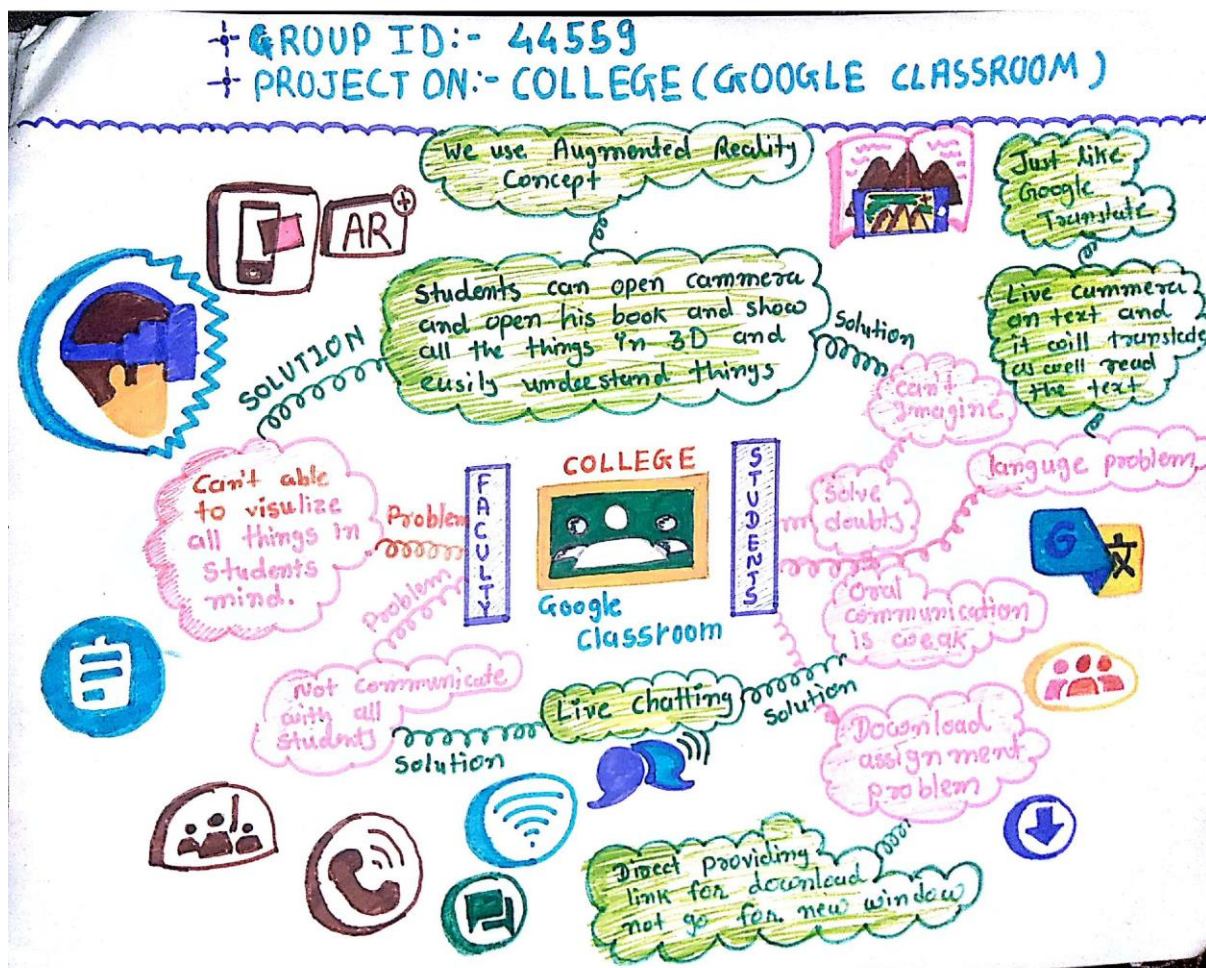 GROUP ID:- 44559
PROJECT ON:- COLLEGE (GOOGLE CLASSROOM)
We use Augmented Reality
Concept
AR
Just like
Google
Translate
Students can open cammera
and open his book and show
all the things in 3D and
easily understand things
SOLUTION
Solution
Live cammera
on text and
it will translate
as well read
the text
can't
Imagine
languge problem
Can't able
to visulize
all things in
students
mind.
Problem
FACULTY
COLLEGE
Google
Classroom
STUDENTS
Solve
doubts
G
文
Problem
Oral
communication
is weak
Not communicate
with all
students
Solution
Live Chatting
Solution
Download
assignment
problem
Direct providing
link for download
not go for new window